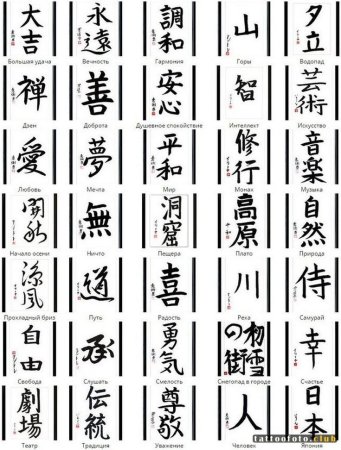 大吉 永遠 調和 山 夕立
Большая удача Вечность Гармония Горы Водопад
禅 善 安心 智 芸術
Дзен Доброта Душевное спокойствие Интеллект Искусство
愛 夢 平和 修行 音楽
Любовь Мечта Мир Монах Музыка
無 洞窟 高原 自然
Начало осени Ничто Пещера Плато Природа
涼風 道 喜 川 侍
Прохладный бриз Путь Радость Река Самурай
自由 承 勇気 初雪の街 幸
Свобода Слушать Смелость Снегопад в городе Счастье
劇場 伝統 尊敬 人 日本
Театр Традиция Уважение Человек Япония
tattoofoto.club